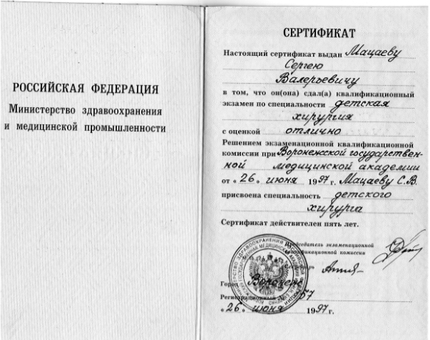 РОССИЙСКАЯ ФЕДЕРАЦИЯ
Министерство здравоохранения
и медицинской промышленности
СЕРТИФИКАТ
Настоящий сертификат выдан Мацаеву
Сергею
Валерьевичу
в том, что он(она) сдал(а) квалификационный
экзамен по специальности детская
хирургия
с оценкой отлично
Решением экзаменационной квалификационной
комиссии при Воронежской государствен-
ной медицинской академии
от « 26 » июня 1997 г. Мацаеву С.В.
присвоена специальность детского
хирурга
Сертификат действителен пять лет.
Председатель экзаменационной
квалификационной комиссии
Город Воронеж
Регистрационный № 57
« 26 » июня 1997 г.